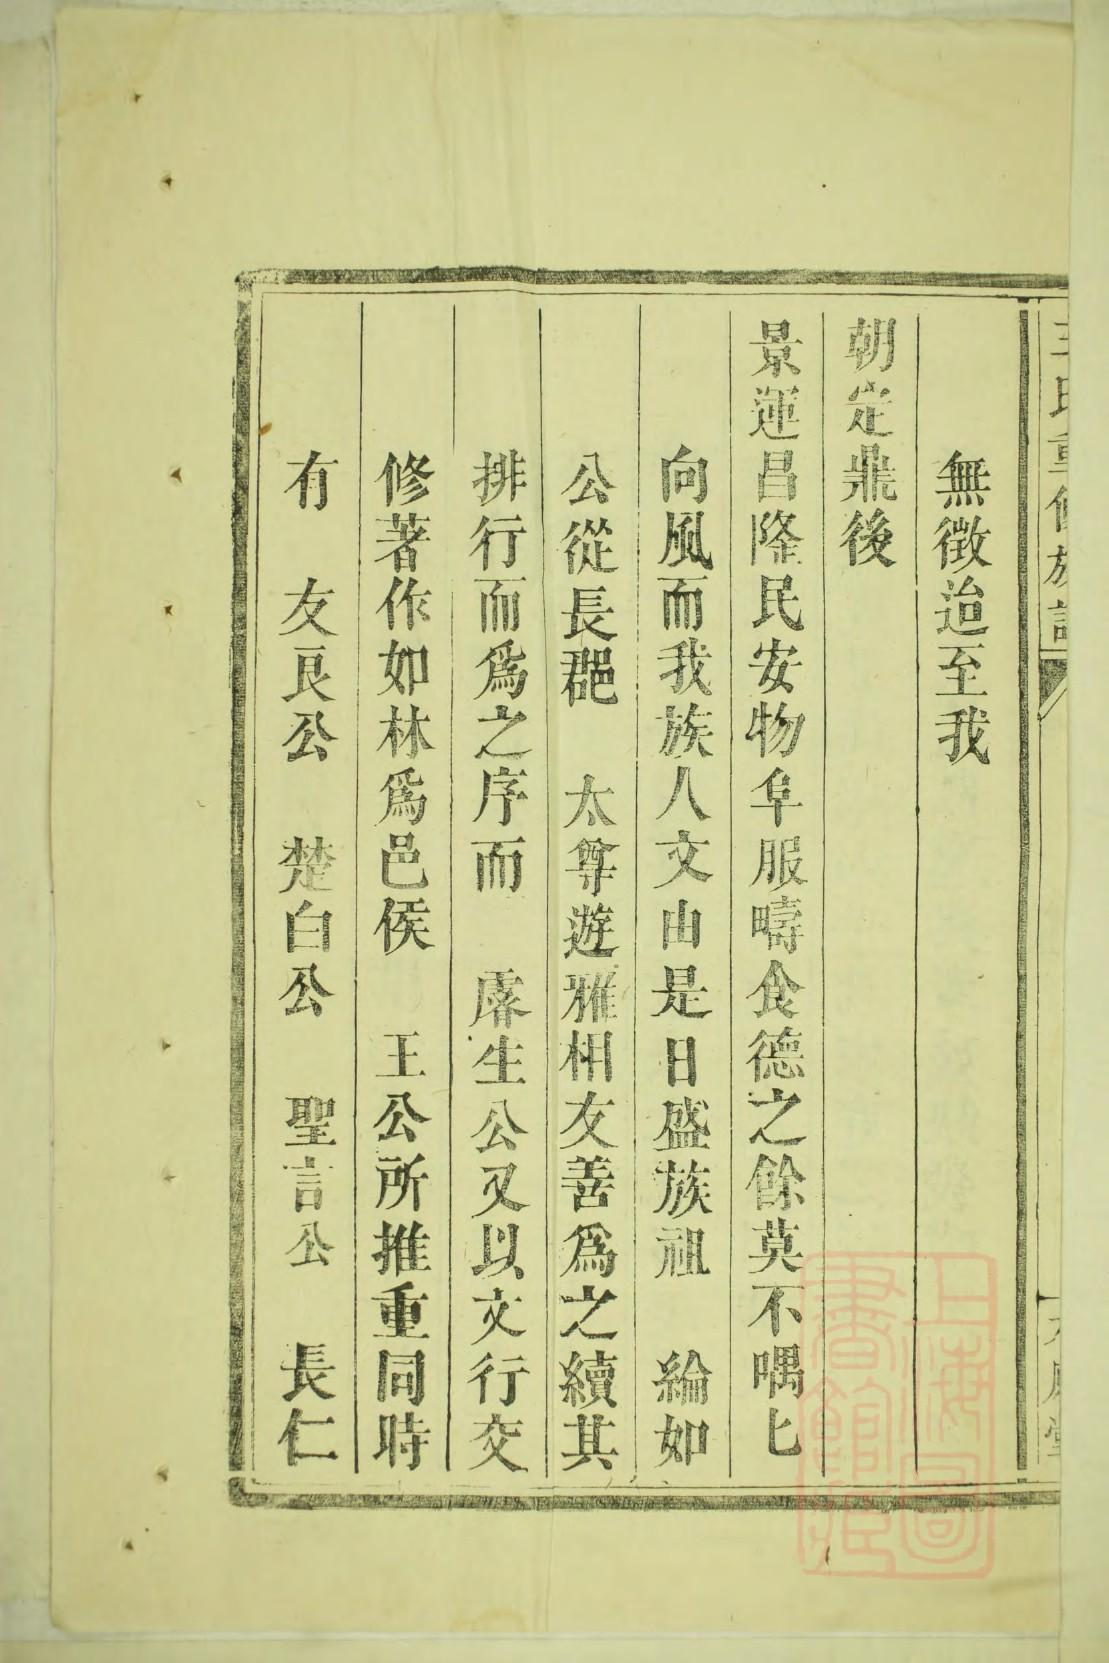 無徵迨至我
朝定鼎後
景運昌隆民安物阜服疇食德之餘莫不喁匕
向風而我族人文由是日盛族祖 綸如
公從長郡 太尊遊雅相友善爲之續其
排行而爲之序而 虞生公又以文行交
修著作如林爲邑侯 王公所推重同時
有 友良公 楚白公 聖言公 長仁
上海圖書館藏